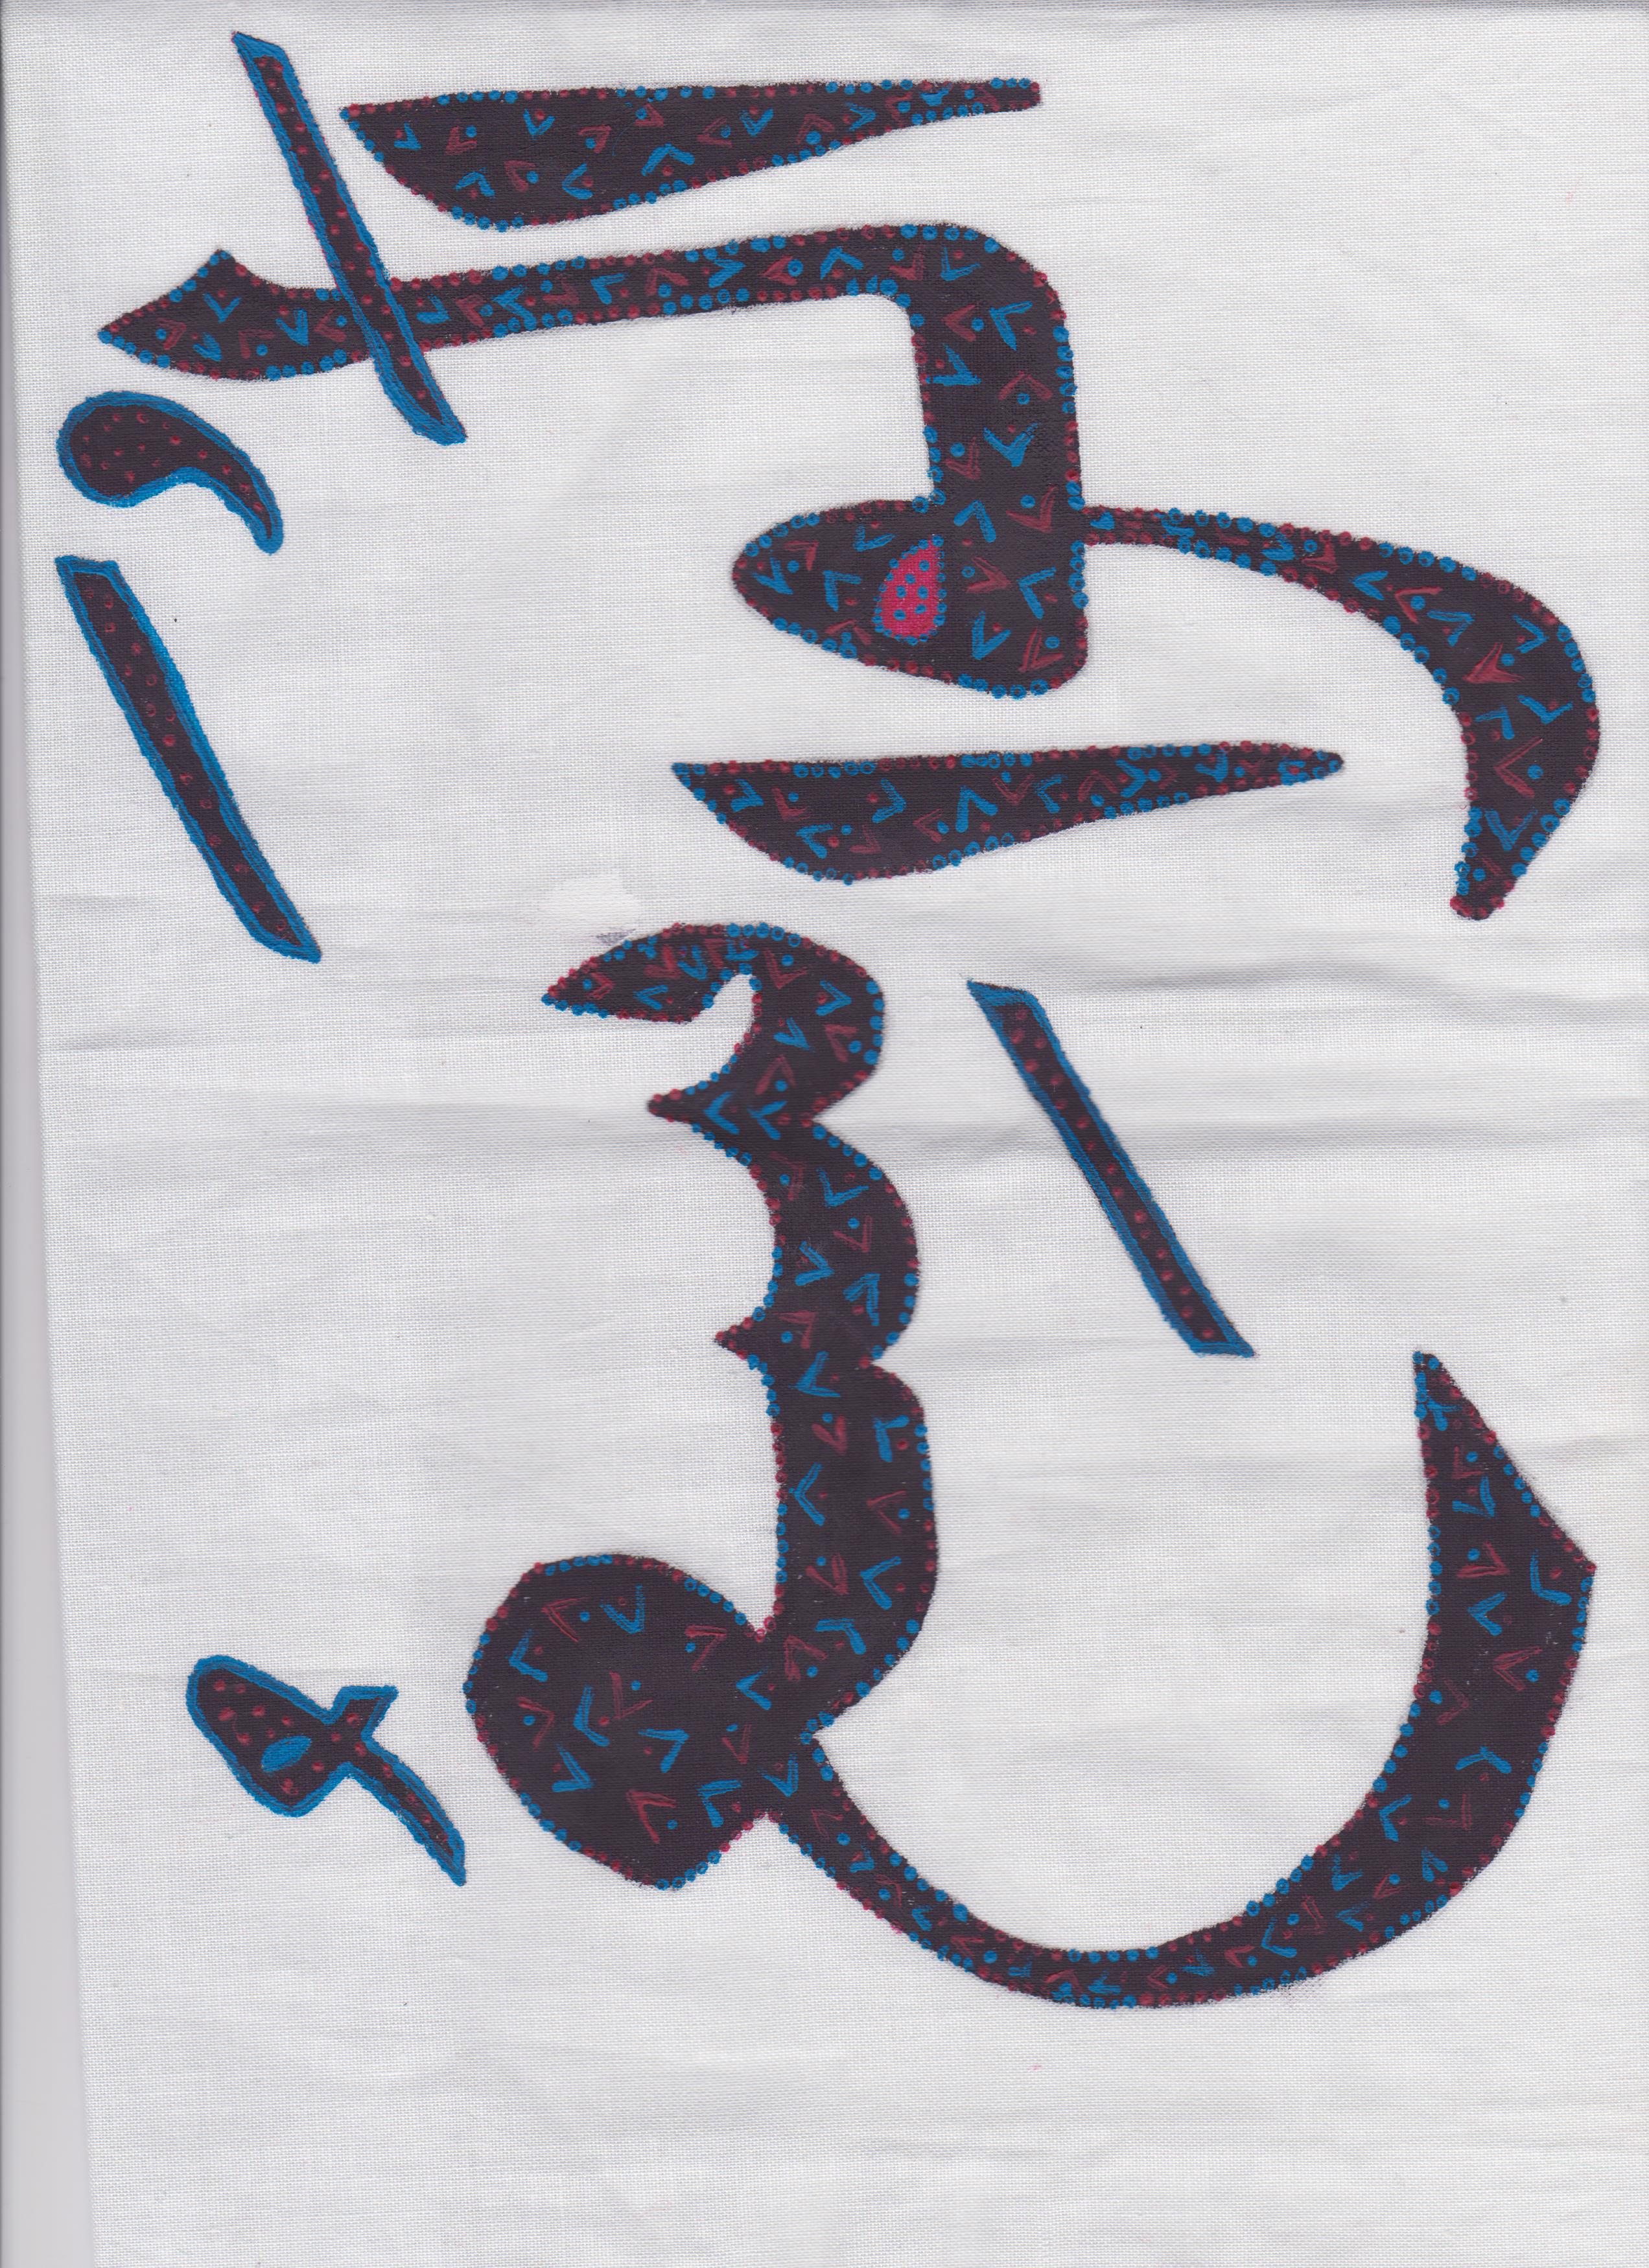 اَلْوَاسِعُ